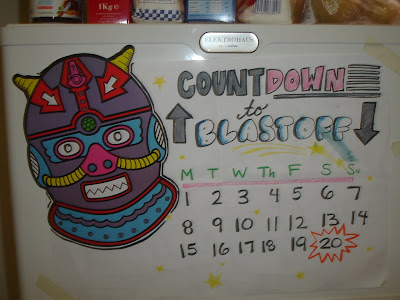 1Kg e
ELEKTROHAUS
COUNTDOWN
to
BLASTOFF
M T W Th F S Su
1 2 3 4 5 6 7
8 9 10 11 12 13 14
15 16 17 18 19 20